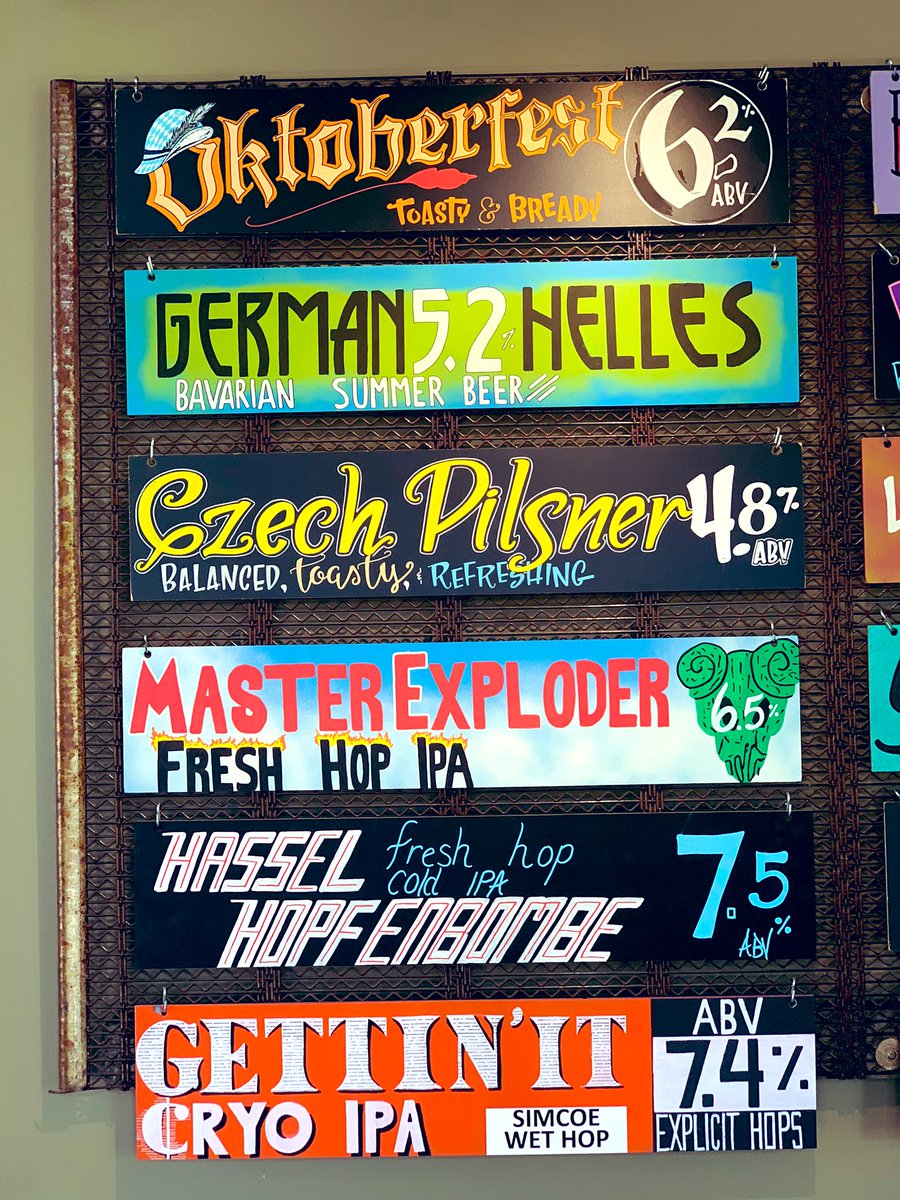 Oktoberfest 6.2% ABV
TOASTY & BREADY
GERMAN 5.2% HELLES
BAVARIAN SUMMER BEER
Czech Pilsner 4.8% ABV
BALANCED, toasty, & REFRESHING
MASTER EXPLODER 6.5%
FRESH HOP IPA
HASSEL fresh hop 7.5% ABV
cold IPA
HOPFENBOMBE
GETTIN'IT ABV
7.4%
CRYO IPA SIMCOE EXPLICIT HOPS
WET HOP